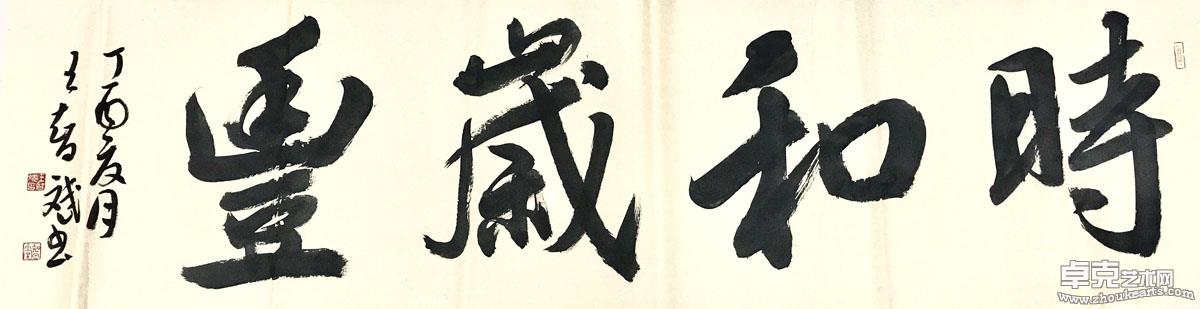 時和歲豐
丁酉夏月
王 斌书
卓克艺术网
www.zhoukearts.com